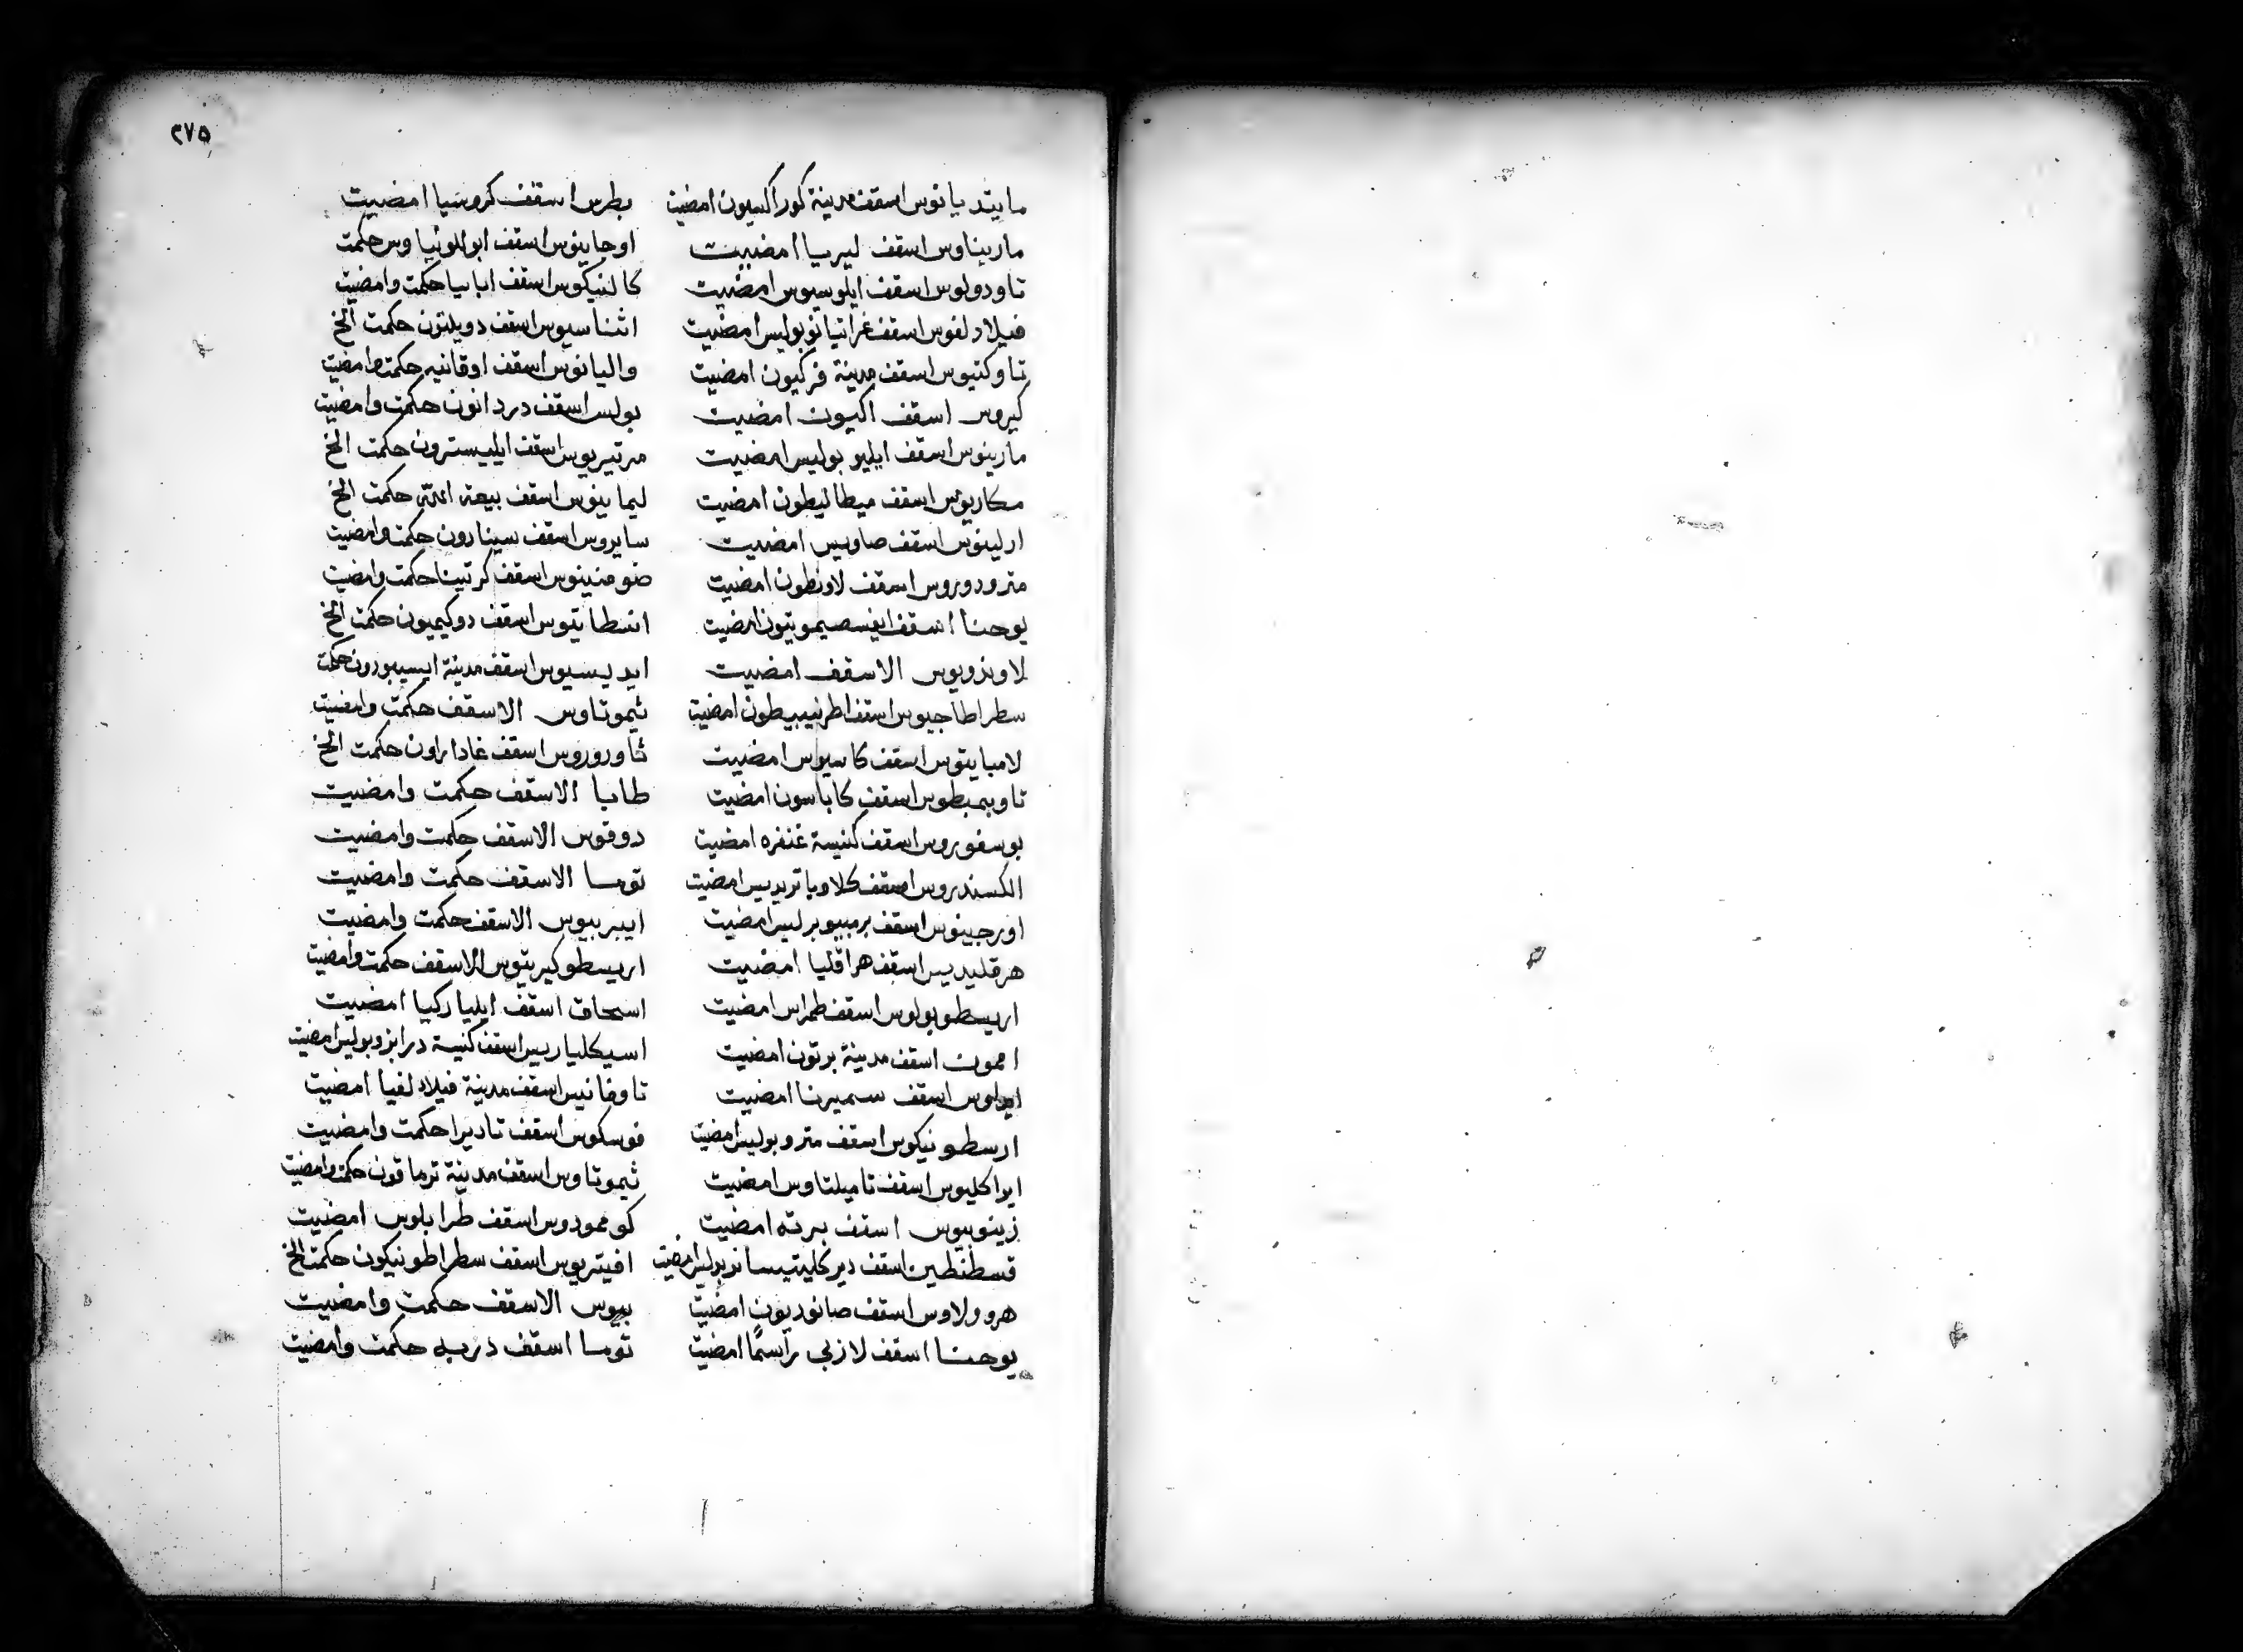 ٢٧٥
مايتديانوس اسقف مدينة كوراكسيون امضيت
ماريناوس اسقف ليريسا امضيت
تاودولوس اسقف ايلوسيوس امضيت
فيلادلفوس اسقف غراتيانوبوليس امضيت
تاوكتيوس اسقف مدينة فركيون امضيت
كيروس اسقف اكيون امضيت
مارينوس اسقف ايليوبوليس امضيت
مكاريوس اسقف ميطاليطون امضيت
ارلينوس اسقف صاويس امضيت
مترودوروس اسقف لاونطون امضيت
يوحنا اسقف امضيت
لاونذويوس الاسقف امضيت
سطراطاجيوس اسقف امضيت
لامبايتوس اسقف كاسيوس امضيت
تاوبمبطوس اسقف كاباسون امضيت
بوسفوروس اسقف كنيسة غنفره امضيت
الكسندروس اسقف كلاوباتريديس امضيت
اورجينوس اسقف امضيت
هرقليديس اسقف هراقليا امضيت
اريسطوبولوس اسقف طمراس امضيت
امون اسقف مدينة برتون امضيت
اسقف سميرنا امضيت
ارسطونيكوس اسقف متروبوليس امضيت
ايراكليوس اسقف تاميلتاوس امضيت
زينوبيوس اسقف برته امضيت
قسطنطين اسقف امضيت
هروولاوس اسقف صانوديون امضيت
يوحنا اسقف لازبي راسمًا امضيت
بطرس اسقف كروسيا امضيت
اوجاينوس اسقف ابوللونياوس حكمت
كالنيكوس اسقف ابابيا حكمت وامضيت
اثناسيوس اسقف دويلتون حكمت الخ
واليانوس اسقف اوقانيه حكمت وامضيت
بولس اسقف دردانون حكمت وامضيت
مرتيريوس اسقف ايلييسترون حكمت الخ
ليماينوس اسقف بيعة الله حكمت الخ
سايروس اسقف سينادون حكمت وامضيت
ضومنينوس اسقف كرتينا حكمت وامضيت
انسطاتيوس اسقف دوكيميون حكمت الخ
ايديسيوس اسقف مدينة ايسيبودون حكمت
ثيموتاوس الاسقف حكمت وامضيت
ثاوروروس اسقف غاداراون حكمت الخ
طابا الاسقف حكمت وامضيت
دوقوس الاسقف حكمت وامضيت
توما الاسقف حكمت وامضيت
ايبربيوس الاسقف حكمت وامضيت
اريسطوكيريتوس الاسقف حكمت وامضيت
اسحاق اسقف ايلياركيا امضيت
اسيكلياريس اسقف كنيسة درابزوبوليس امضيت
تاوفانيس اسقف مدينة فيلادلفيا امضيت
فوسكوس اسقف تاديرا حكمت وامضيت
ثيموتاوس اسقف مدينة ترماقون حكمت وامضيت
كومودوس اسقف طرابلوس امضيت
افيتريوس اسقف سطراطونيكون حكمت الخ
بيوس الاسقف حكمت وامضيت
توما اسقف دربه حكمت وامضيت